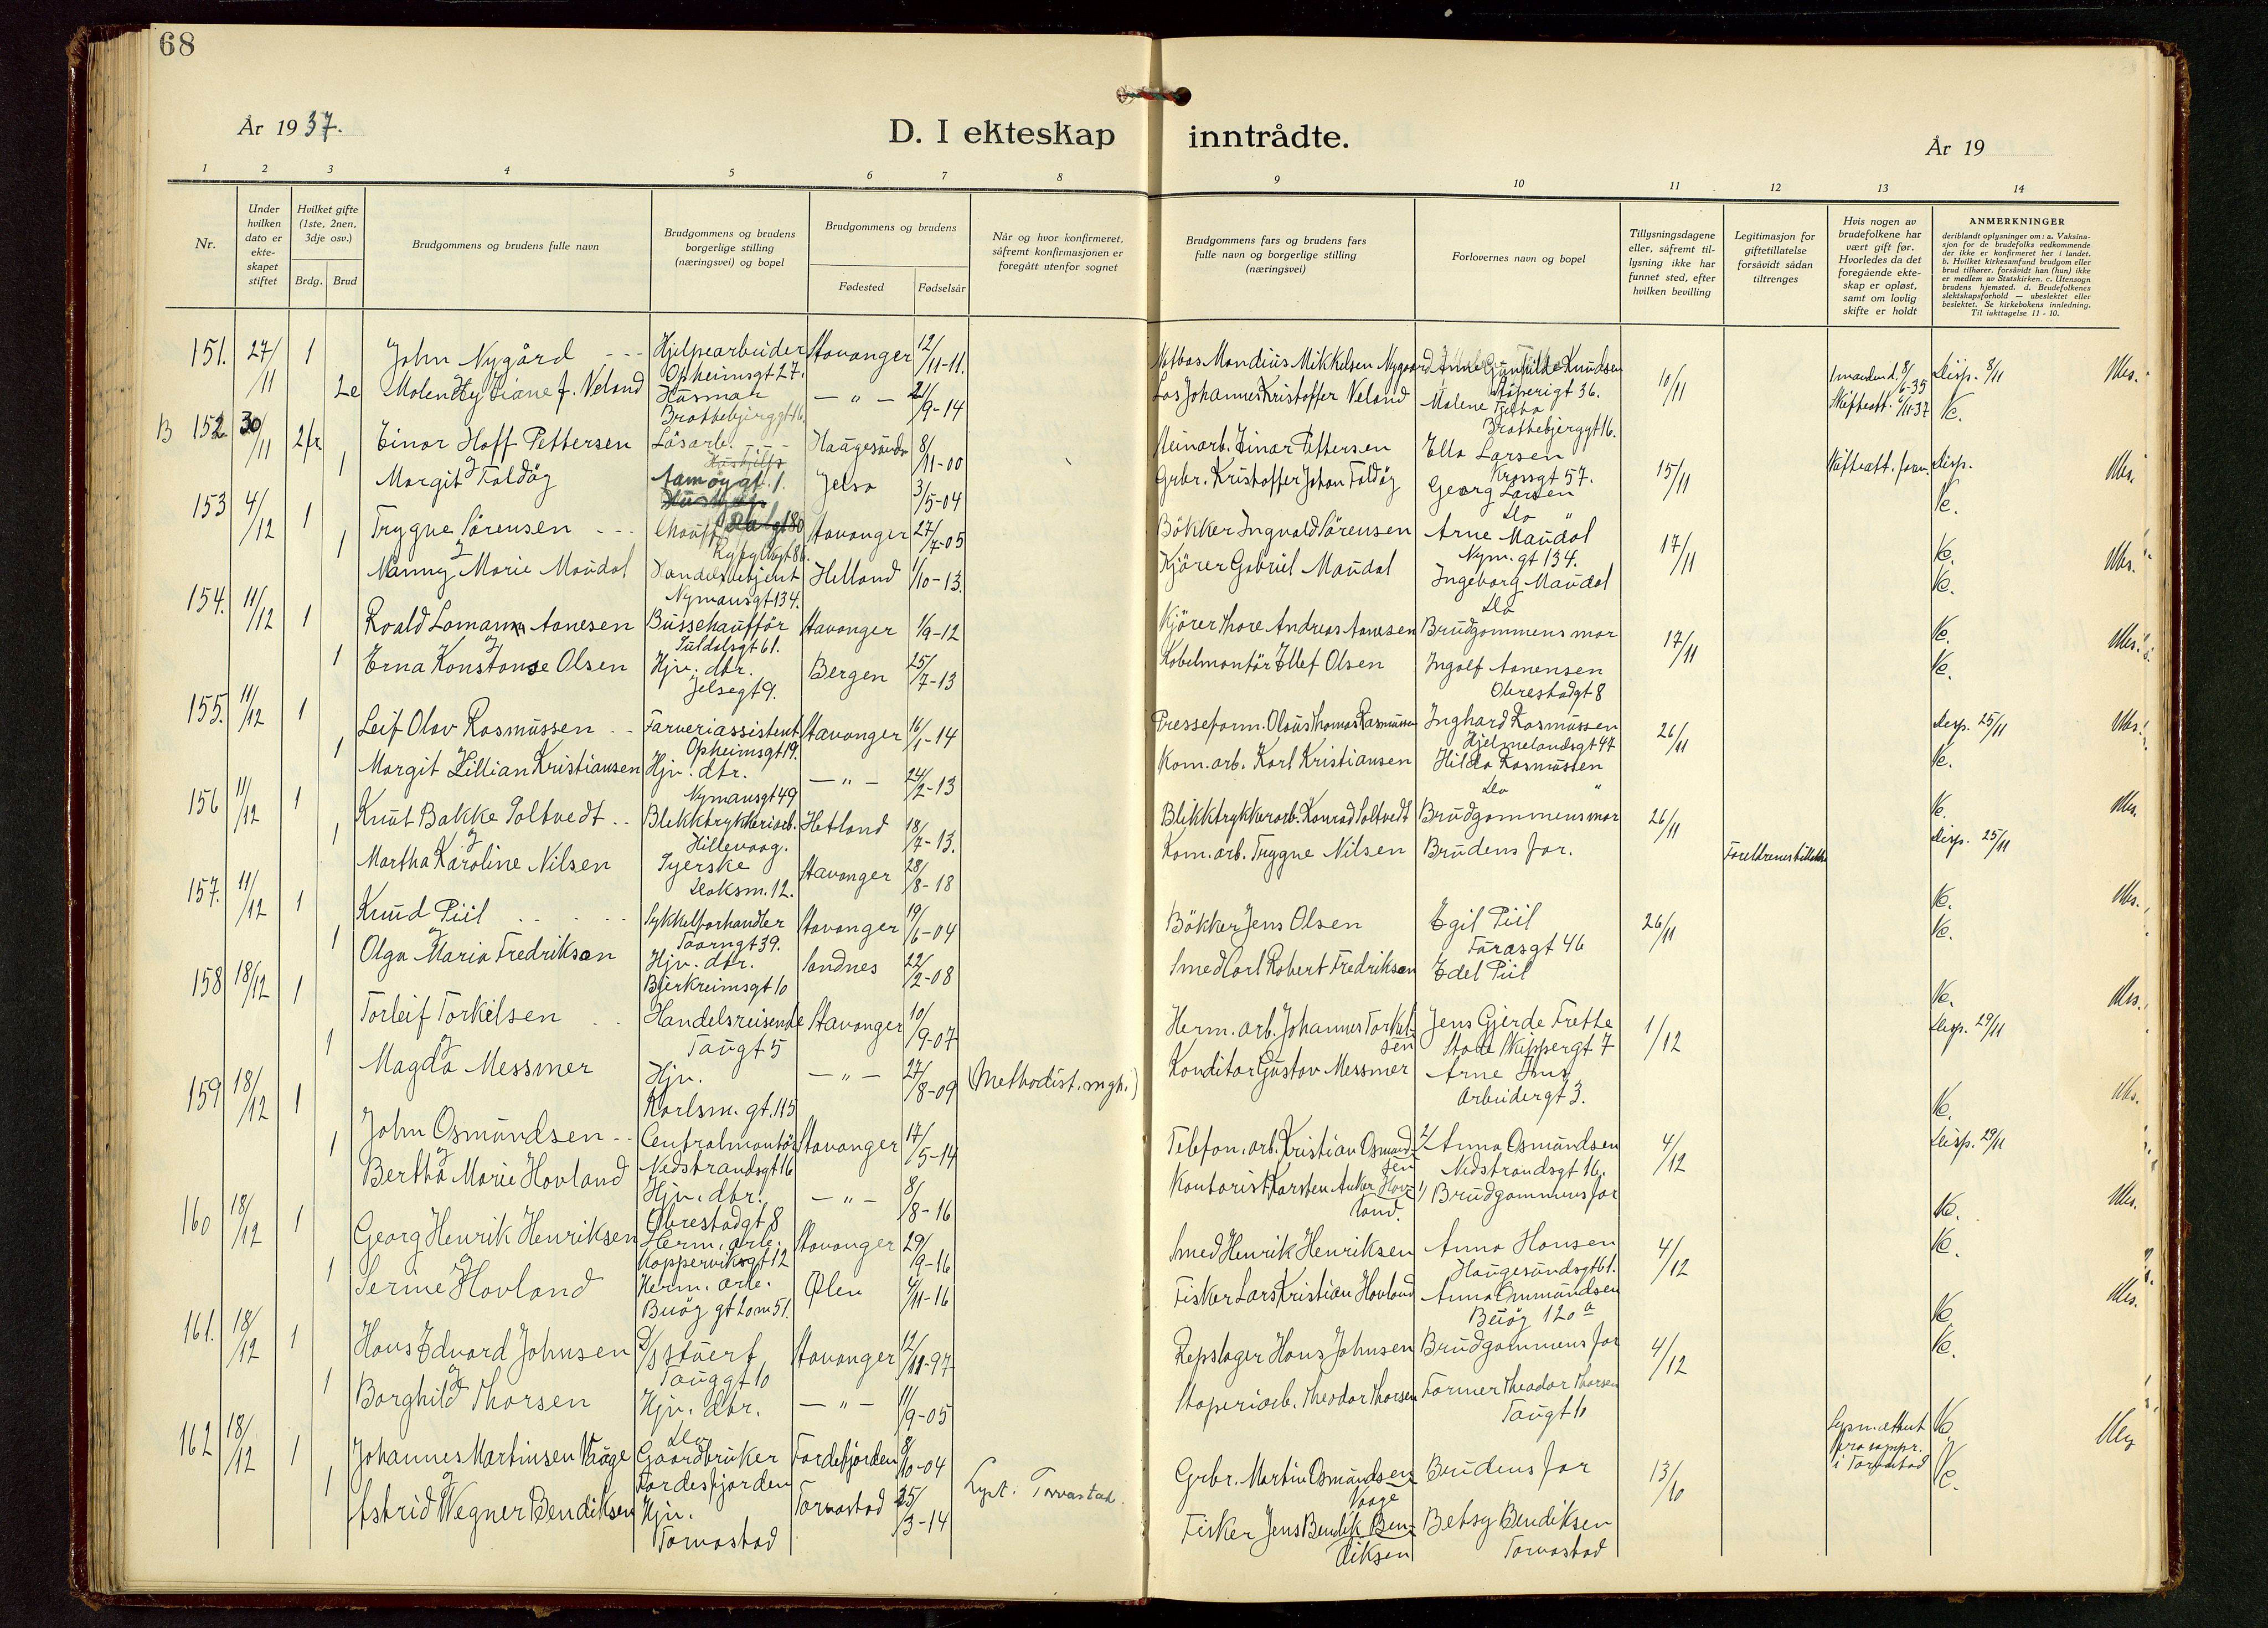 68
År 1937.
D. I ekteskap inntrådte.
År 19
1 2 3 4 5 6 7 8 9 10 11 12 13 14
Nr.
Under hvilken dato er ekte-skapet stiftet
Hvilket gifte (1ste, 2nen, 3dje osv.)
Brdg. Brud
Brudgommens og brudens fulle navn
Brudgommens og brudens borgerlige stilling (næringsvei) og bopel
Brudgommens og brudens
Fødested
Fødselsår
Når og hvor konfirmeret, såfremt konfirmasjonen er foregått utenfor sognet
Brudgommens fars og brudens fars fulle navn og borgerlige stilling (næringsvei)
Forlovernes navn og bopel
Tillysningsdagene eller, såfremt til-lysning ikke har funnet sted, efter hvilken bevilling
Legitimasjon for giftetillatelse forsåvidt sådan tiltrenges
Hvis nogen av brudefolkene har vært gift før. Hvorledes da det foregående ekte-skap er opløst, samt om lovlig skifte er holdt
ANMERKNINGER
deriblandt oplysninger om: a. Vaksina-sjon for de brudefolks vedkommende der ikke er konfirmeret her i landet. b. Hvilket kirkesamfund brudgom eller brud tilhører, forsåvidt han (hun) ikke er medlem av Statskirken. c. Utensogn brudens hjemsted. d. Brudefolkenes slektskapsforhold — ubeslektet eller beslektet. Se kirkebokens innledning. Til iakttagelse 11 - 10.
151. 27/11 1 John Nygård Hjelpearbeider Stavanger 12/11-11. Mandius Mikkelsen Nygaard Knudsen 10/11 Disp. 8/11
Opheimsgt 27. Støperigt 36.
2e f. Veland Husmor - " - 21/9-14 Los Johannes Kristoffer Veland Malene Skifteatt. Ve.
Brattebjerggt 16. Brattebjerggt 16.
B 152. 30/11 2 fr. Einar Hoff Pettersen Løsarb. Haugesund 8/11-00 Einar Pettersen Ella Larsen 15/11 Skifteatt. Disp.
Kronsgt 57.
1 Margit Foldøy Aamøygt. 1. Jelsa 3/5-04 Grbr. Kristoffer Johan Foldøy Georg Larsen Ve.
Do "
153 4/12 1 Trygve Sørensen Chauff. Stavanger 27/7-05 Bøkker Ingvald Sørensen Arne Maudal 17/11 Ve.
Nym. gt 134.
1 Nanny Marie Maudal Handelsbetjent Helland 1/10-13. Kjører Gabriel Maudal Ingeborg Maudal Ve.
Nymansgt 134. Do
154. 11/12 1 Roald Lomann Aanesen Busschauffør Stavanger 1/9-12 Kjører Thore Andreas Aanesen Brudgommens mor 17/11 Ve.
Suldalsgt 61.
1 Erna Konstanse Olsen Hjv. dtr. Bergen 25/7-13 Kabelmontør Ellef Olsen Ingolf Aanensen Ve.
Jelsegt 9. Obrestadgt 8
155. 11/12 1 Leif Olav Rasmussen Farveriassistent Stavanger 16/1-14 Presseform. Olaus Thomas Rasmussen Inghard Rasmussen 26/11 Disp. 25/11
Opheimsgt 19. Hjelmelandsgt 47
1 Margit Lillian Kristiansen Hjv. dtr. - " - 24/2-13 Kom. arb. Karl Kristiansen Hilda Rasmussen Ve.
Nymansgt 49 Do "
156 11/12 1 Knut Bakke Soltvedt Blikktrykkeriarb. Hetland 18/7-13. Blikktrykkerarb. Konrad Soltvedt Brudgommens mor 26/11 Ve.
Hillevaag.
1 Martha Karoline Nilsen Syerske Stavanger 28/8-18 Kom. arb. Trygve Nilsen Brudens far. Foreldrenes tillatelse Disp. 25/11
Koksm. 12.
157. 11/12 1 Knud Piil Sykkelforhandler Stavanger 19/6-04 Bøkker Jens Olsen Egil Piil 26/11 Ve.
Taarngt 39. Farasgt 46
1 Olga Maria Fredriksen Hjv. dtr. Sandnes 22/2-08 Smed Carl Robert Fredriksen Edel Piil Ve.
Bjerkreimsgt 10
158 18/12 1 Torleif Torkelsen Handelsreisende Stavanger 10/9-07 Herm. arb. Johannes Torkelsen Jens Gjerde Frette 1/12 Ve.
Taugt 5 Store Skippergt 7 Disp. 29/11
1 Magda Messmer Hjv. - " - 27/8-09 (Methodist. mgh.) Konditor Gustav Messmer Arne
Karlsm. gt. 115 Arbeidergt 3.
159 18/12 1 John Osmundsen Centralmontør Stavanger 17/5-14 Telefon. arb. Kristian Osmundsen 2/ Anna Osmundsen 4/12 Ve.
Nedstrandsgt 16 Nedstrandsgt 16.
1 Bertha Marie Hovland Hjv. dtr. - " - 8/8-16 Kontorist Karsten Anker Hovland. 1/ Brudgommens far Disp. 29/11
Obrestadgt 8
160 18/12 1 Georg Henrik Henriksen Herm. arb. Stavanger 29/9-16 Smed Henrik Henriksen Anna Hansen 4/12 Ve.
Kopperviksgt 12 Haugesundsgt 61.
1 Serine Hovland Herm. arb. Ølen 4/11-16 Fisker Lars Kristian Hovland Anna Ommundsen Ve.
Buøy gt 2 om 51. Buøy 120 a
161. 18/12 1 Hans Edvard Johnsen D/S stuert Stavanger 12/12-97 Repslager Hans Johnsen Brudgommens far 4/12 Ve.
Tauggt 10
1 Borghild Thorsen Hjv. dtr. - " - 11/9-05 Støperiarb. Theodor Thorsen Former Theodor Thorsen Ve.
Do Taugt 11
162 18/12 1 Johannes Martinsen Våge Gaardbruker Førdesfjorden 8/10-04 Grbr. Martin Osmundsen Vaage Brudens far 13/10 Lysn. attest fra sognpr. i Torvastad Ve.
Førdesfjorden
1 Astrid Wegner Bendiksen Hjv. Torvastad 25/3-14 Lyst. Torvastad. Fisker Jens Bendik Bendiksen Betsy Bendiksen Ve.
Torvastad Torvastad